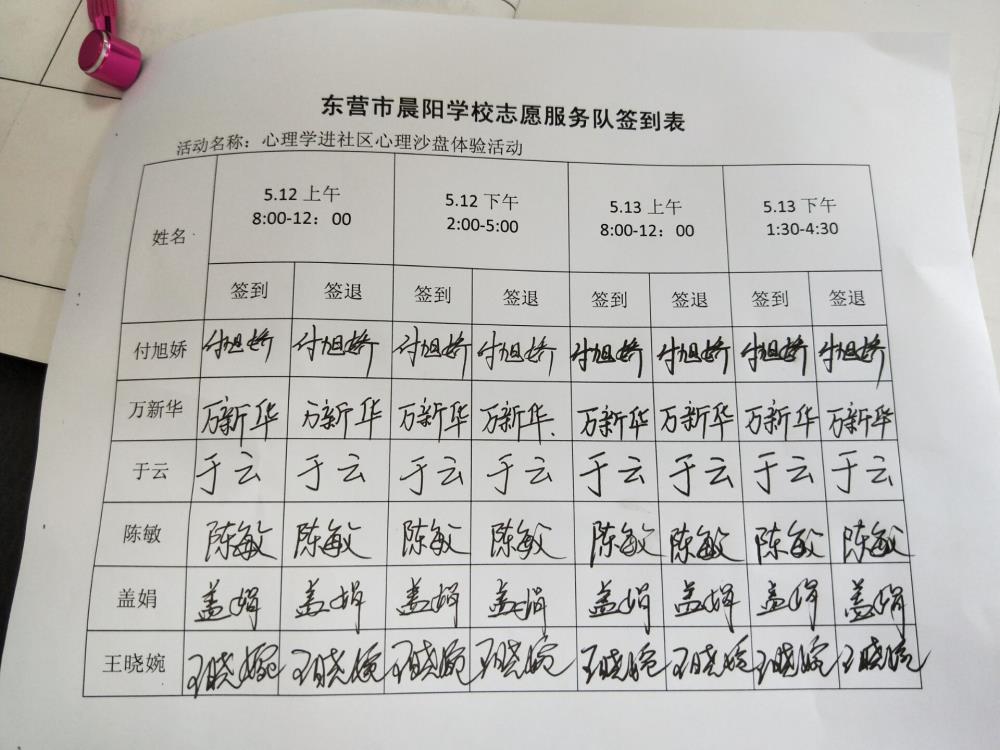 东营市晨阳学校志愿服务队签到表
活动名称：心理学进社区心理沙盘体验活动
姓名 5.12 上午 5.12 下午 5.13 上午 5.13 下午
8:00-12：00 2:00-5:00 8:00-12：00 1:30-4:30
签到 签退 签到 签退 签到 签退 签到 签退
付旭娇 付旭娇 付旭娇 付旭娇 付旭娇 付旭娇 付旭娇 付旭娇 付旭娇
万新华 万新华 万新华 万新华 万新华 万新华 万新华 万新华 万新华
于云 于云 于云 于云 于云 于云 于云 于云 于云
陈敏 陈敏 陈敏 陈敏 陈敏 陈敏 陈敏 陈敏 陈敏
盖娟 盖娟 盖娟 盖娟 盖娟 盖娟 盖娟 盖娟 盖娟
王晓婉 王晓婉 王晓婉 王晓婉 王晓婉 王晓婉 王晓婉 王晓婉 王晓婉